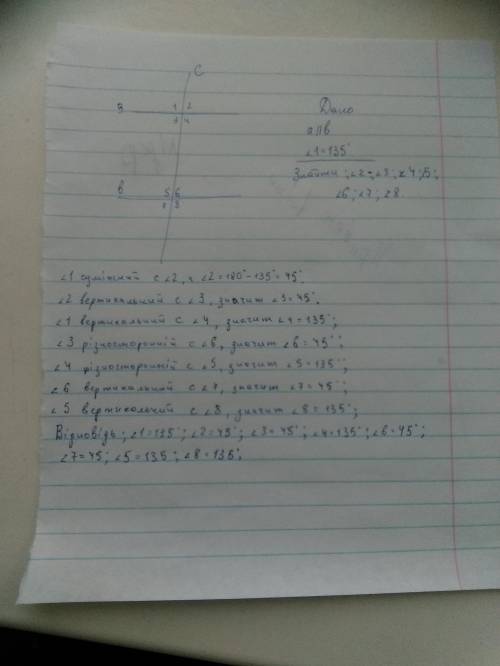 C
a 1 2
3 4
в 5 6
8
Дано
а||в
∠1=135°
Знайти ; ∠2 ∠3; ∠4; 5;
∠6; ∠7; ∠8.
∠1 суміжний с ∠2, ∠2=180°-135°=45°.
∠2 вертикальний с ∠3, значит ∠3=45°.
∠1 вертикальний с ∠4, значит ∠4=135°;
∠3 різносторонній с ∠6, значит ∠6=45°;
∠4 різносторонній с ∠5, значит ∠5=135°;
∠6 вертикальний с ∠7, значит ∠7=45°;
∠5 вертикальний с ∠8, значит ∠8=135°;
Відповідь; ∠1=135°; ∠2=45°; ∠3=45°; ∠4=135°; ∠6=45°;
∠7=45; ∠5=135°; ∠8=135°;